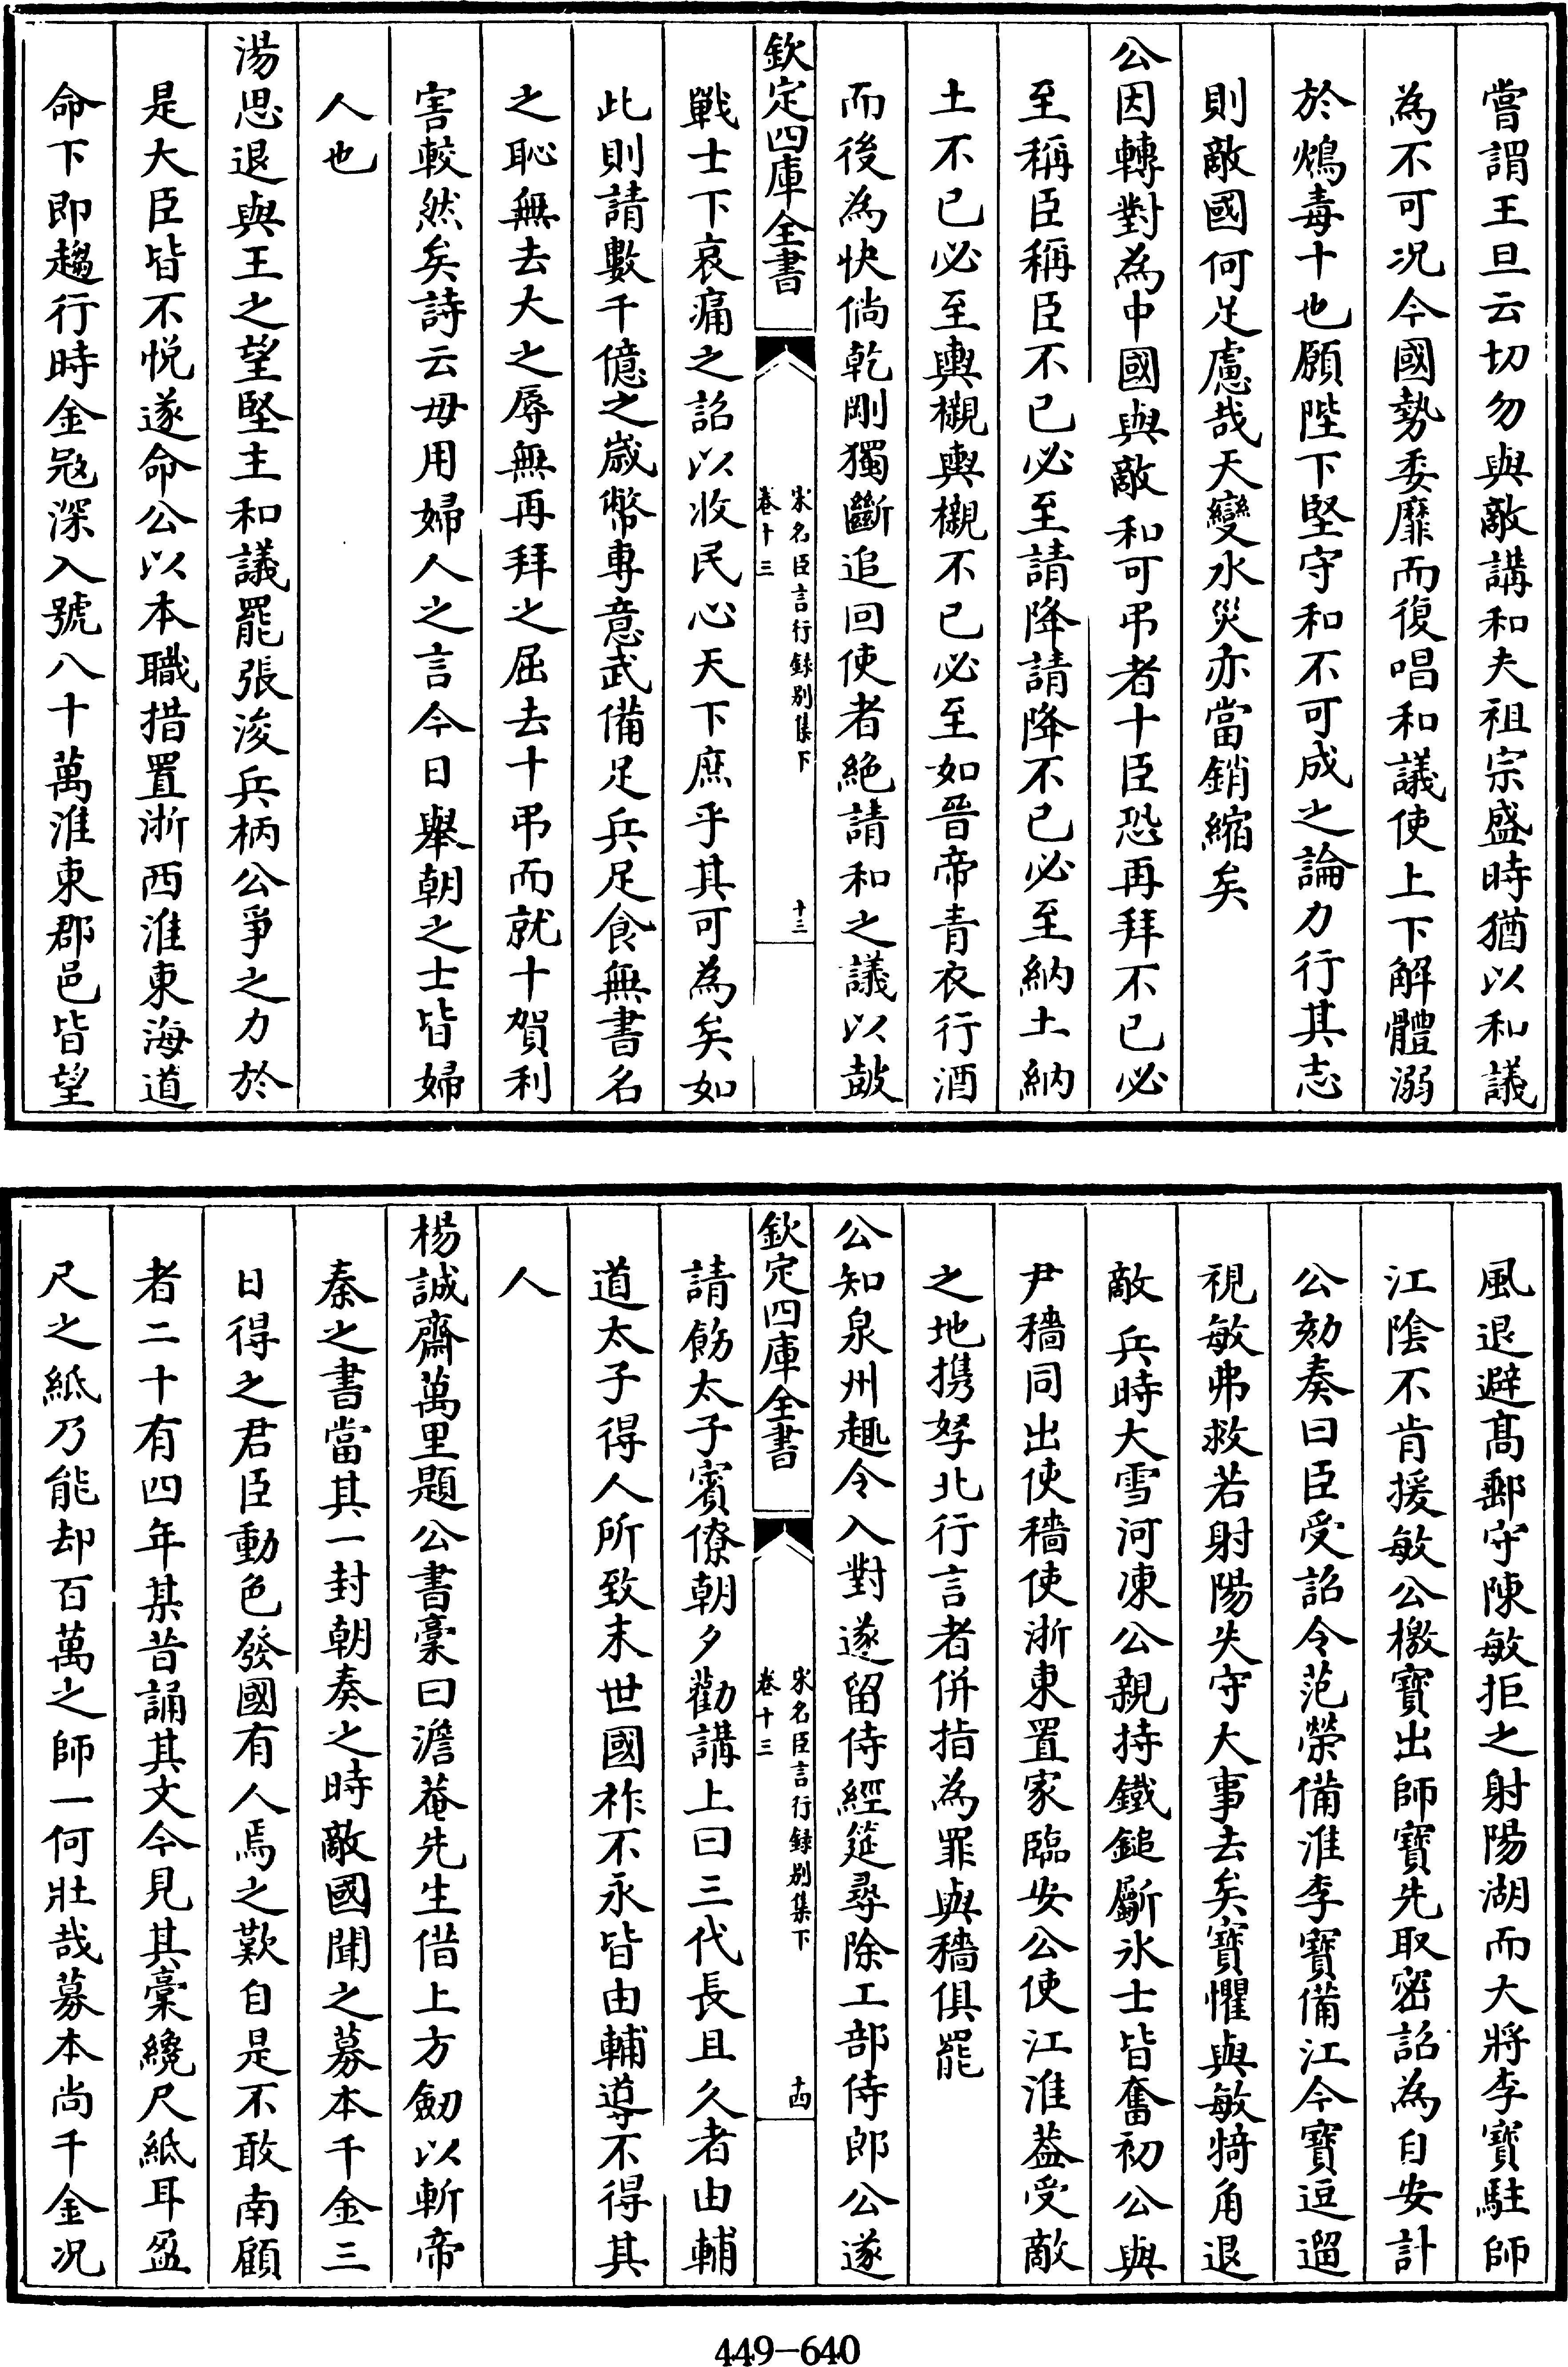 嘗謂王旦云切勿與敵講和夫祖宗盛時猶以和議
為不可况今國勢委靡而復唱和議使上下解體溺
於鴆毒十也願陛下堅守和不可成之論力行其志
則敵國何足慮哉天變水災亦當銷縮矣
公因轉對為中國與敵和可弔者十臣恐再拜不已必
至稱臣稱臣不已必至請降請降不已必至納土納
土不已必至輿櫬輿櫬不已必至如晉帝青衣行酒
而後為快倘乾剛獨斷追回使者絶請和之議以鼓
欽定四庫全書
宋名臣言行録别集下
卷十三
十三
戰士下哀痛之詔以收民心天下庶乎其可為矣如
此則請數千億之嵗幣專意武備足兵足食無書名
之恥無去大之辱無再拜之屈去十弔而就十賀利
害較然矣詩云毋用婦人之言今日舉朝之士皆婦
人也
湯思退與王之望堅主和議罷張浚兵柄公爭之力於
是大臣皆不悦遂命公以本職措置浙西淮東海道
命下即趨行時金冦深入號八十萬淮東郡邑皆望
風退避髙郵守陳敏拒之射陽湖而大將李寶駐師
江隂不肯援敏公檄寶出師寶先取密詔為自安計
公劾奏曰臣受詔令范榮備淮李寶備江今寶逗遛
視敏弗救若射陽失守大事去矣寶懼與敏犄角退
敵兵時大雪河凍公親持鐵鎚斸氷士皆奮初公與
尹穡同出使穡使浙東置家臨安公使江淮葢受敵
之地携孥北行言者併指為罪與穡俱罷
公知泉州趣令入對遂留侍經筵尋除工部侍郎公遂
欽定四庫全書
宋名臣言行録别集下
卷十三
十四
請飭太子賓僚朝夕勸講上曰三代長且久者由輔
道太子得人所致末世國祚不永皆由輔導不得其
人
楊誠齋萬里題公書稾曰澹菴先生借上方劒以斬帝
秦之書當其一封朝奏之時敵國聞之募本千金三
日得之君臣動色發國有人焉之歎自是不敢南顧
者二十有四年某昔誦其文今見其稾纔尺紙耳盈
尺之紙乃能却百萬之師一何壯哉募本尚千金况
449-640